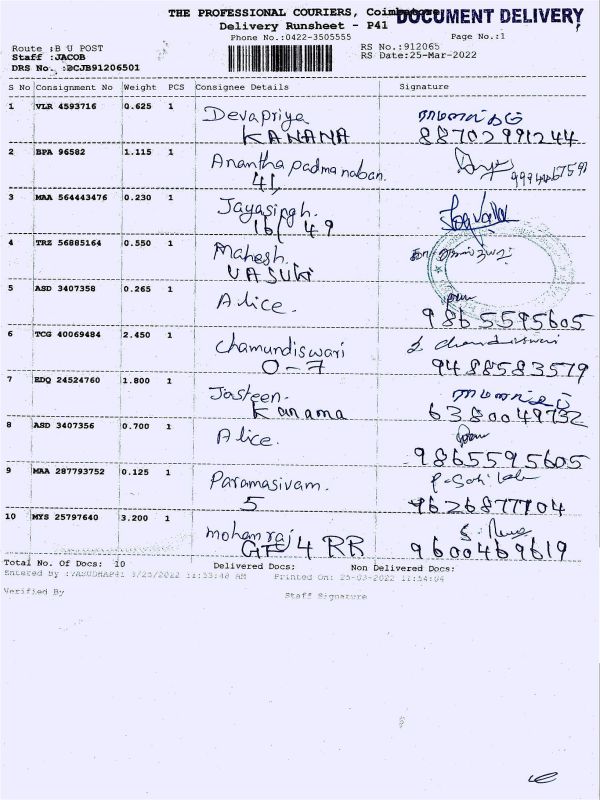 THE PROFESSIONAL COURIERS, Coimbatore
DOCUMENT DELIVERY
Delivery Runsheet - P41
Phone No.:0422-3505555
Page No.:1
Route :B U POST
RS No.:912065
Staff :JACOB
RS Date:25-Mar-2022
DRS No. :DCJB91206501
S No Consignment No Weight PCS Consignee Details Signature
1 VLR 4593716 0.625 1 Devapriya
KANANA 88702991244
2 BPA 96582 1.115 1 Ananthapadmanaban.
41,
3 MAA 564443476 0.230 1 Jayasingh.
16/ 49
4 TRZ 56885164 0.550 1 Mahesh.
VASUKI
5 ASD 3407358 0.265 1 Alice.
9865595605
6 TCG 40069484 2.450 1 Chamundiswari
O-7 9488583579
7 EDQ 24524760 1.800 1 Jasteen.
Kanama 6380049732
8 ASD 3407356 0.700 1 Alice.
9865595605
9 MAA 287793752 0.125 1 Paramasivam.
5 9626877104
10 MYS 25797640 3.200 1 mohanraj
GF 4 RR 9600469619
Total No. Of Docs: 10 Delivered Docs: Non Delivered Docs:
Entered By :VASUDHAP41 3/25/2022 11:53:48 AM Printed On: 25-03-2022 11:54:04
Verified By Staff Signature